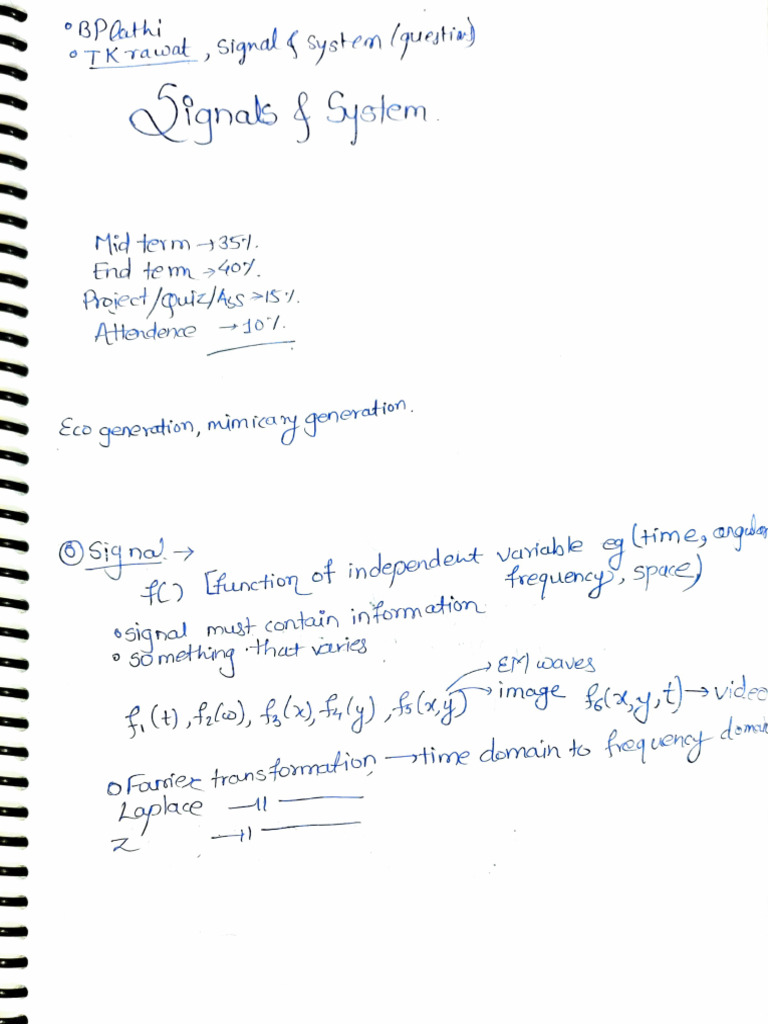 • BP Lathi
• TK rawat, signal & system (question)
Signals & System.
Mid term → 35%.
End term → 40%.
Project/Quiz/Ass → 15%.
Attendence → 10%.
Eco generation, mimicary generation.
⊙ Signal →
f( ) [function of independent variable eg (time, angular
frequency, space)
• signal must contain information
• something that varies
→ EM waves
f₁(t), f₂(ω), f₃(x), f₄(y), f₅(x,y) → image f₆(x,y,t) → video
o Farrier transformation → time domain to frequency domain
Laplace —11—
Z —11—